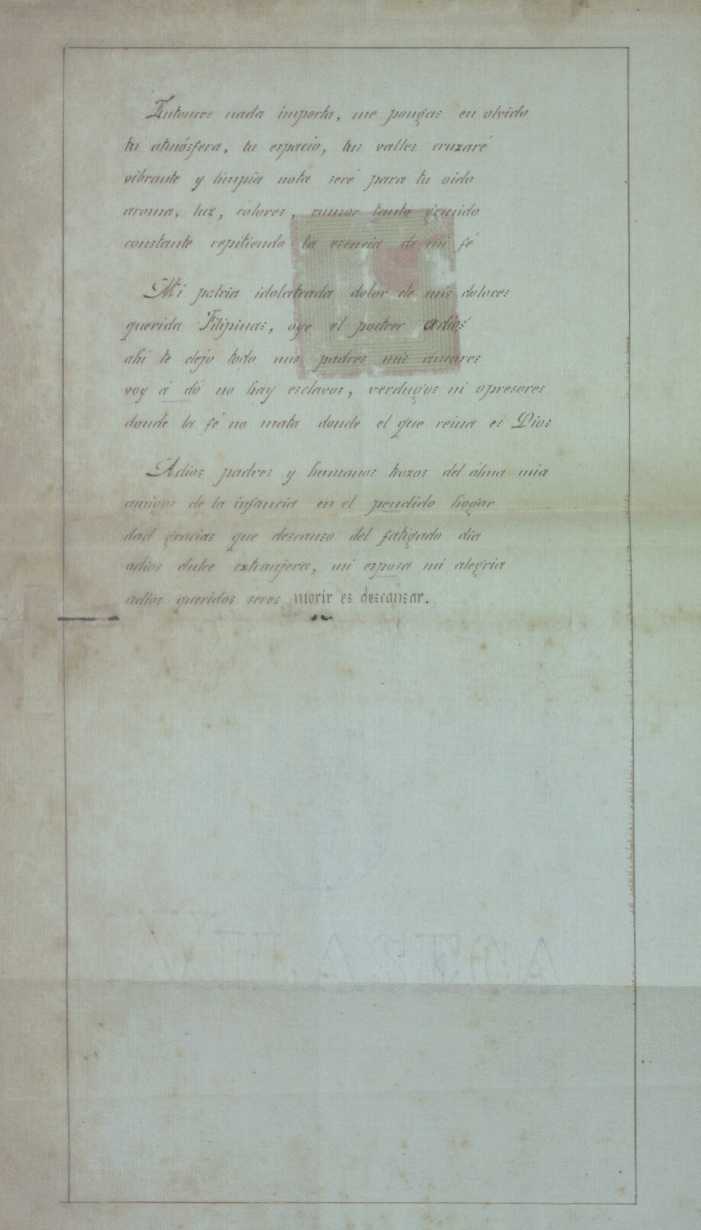 Entonces nada importa, me pongas en olvido
tu atmósfera, tu espacio, tus valles cruzaré
vibrante y limpia nota seré para tu oido
aroma, luz, colores, rumor canto gemido
constante repitiendo la esencia de mi fé
Mi patria idolatrada dolor de mis dolores
querida Filipinas, oye el postrer adiós
ahi te dejo todo mis padres mis amores
voy á dó no hay esclavos, verdugos ni opresores
donde la fé no mata donde el que reina es Dios
Adios padres y hermanos trozos del alma mia
amigos de la infancia en el perdido hogar
dad gracias que descanso del fatigado dia
adios dulce extranjera, mi esposa mi alegria
adios queridos seres morir es descansar.